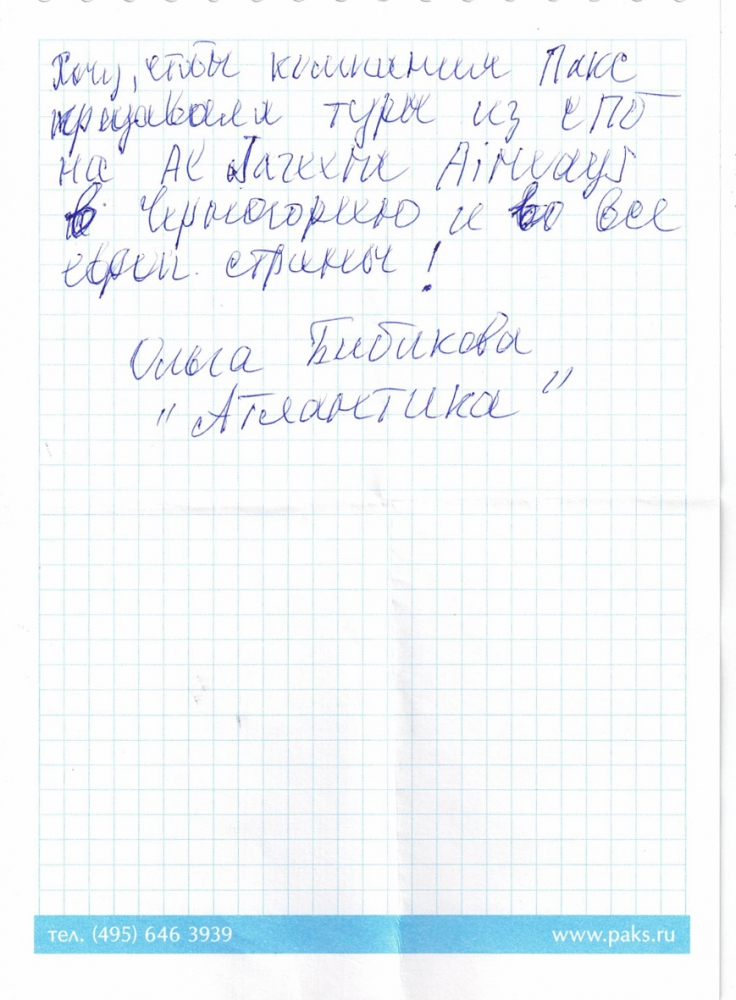 Хочу, чтобы компания Пакс
продавала туры из СПб
на АК Airways
в Черногорию и во все
европ. страны!
Ольга Бибикова
"Атлантика"
тел. (495) 646 3939
www.paks.ru